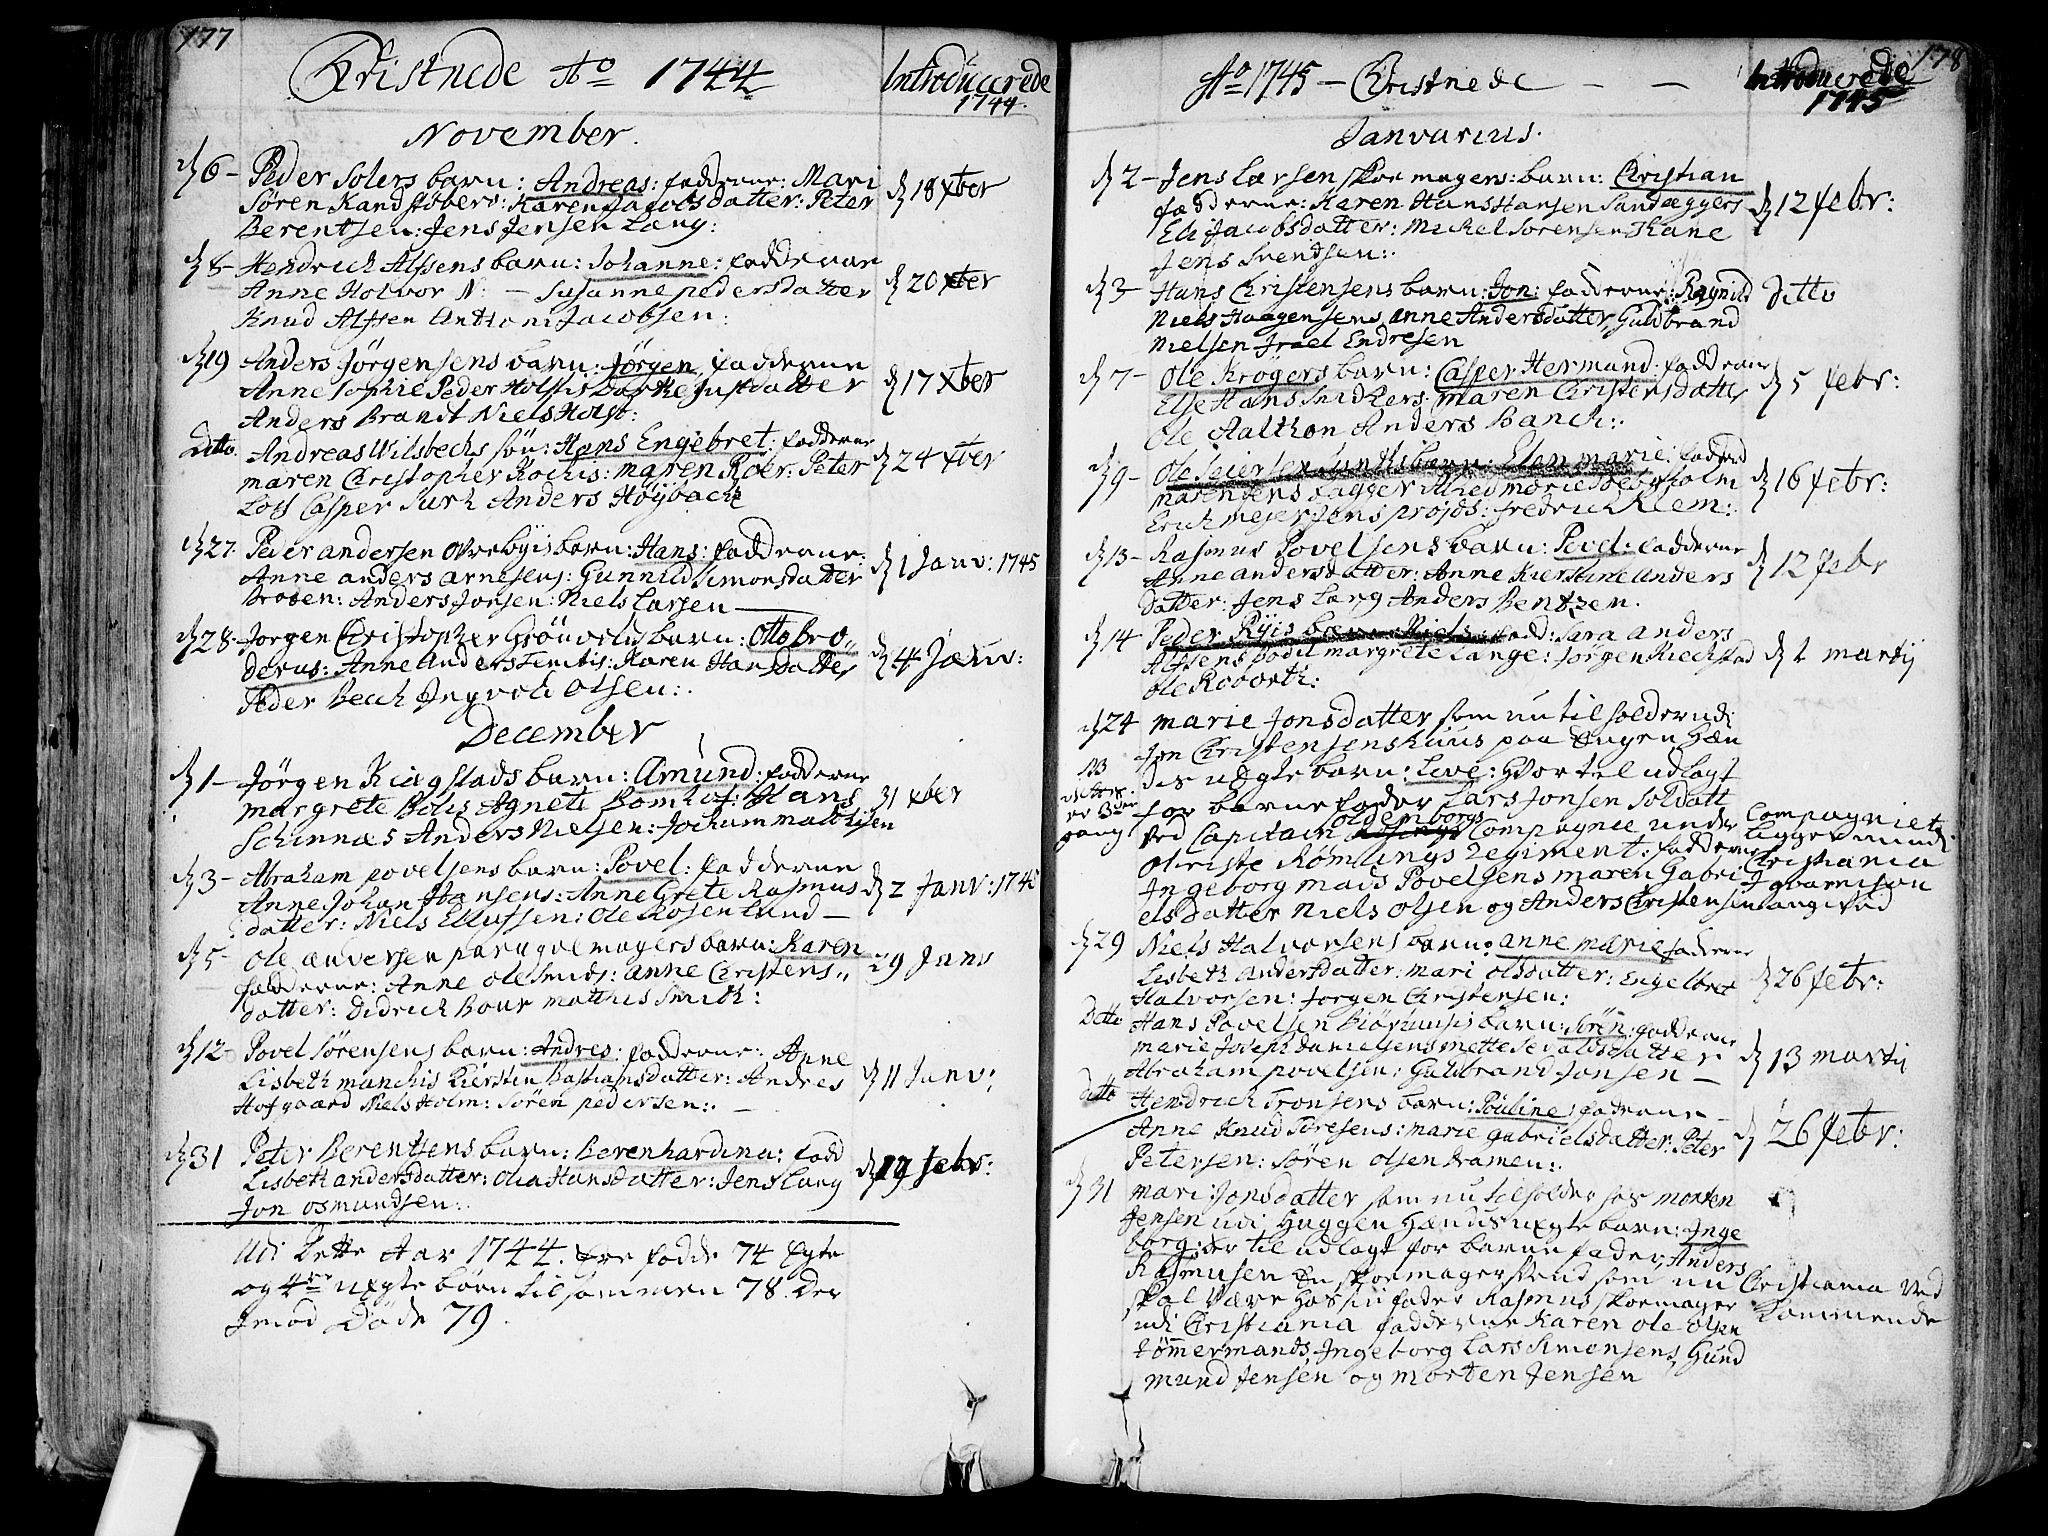 177
Christnede Ao 1744
Introducerede
1744.
November.
d 6 - Peder Solers barn: Andreas: fadderne: Mari
Søren Kandstøbers: Karen Jacobsdatter: Peter
Berentsen: Jens Jensen Lang:
d 18 xber
d 8 - Hendrich Alfsens barn: Johanne: fadderne
Anne Holvor N: - Susanne pedersdatter
Knud Alfsen Anthoni Jacobsen:
d 20 xber
d 19 Anders Jørgensens barn: Jørgen, fadderne
Anne Sophie Peder Holstis Justdatter
Anders Brandt Niels Holst:
d 17 xber
Ditto. Andreas Wilsbechs søn: Hans Engebret: fadderne
maren Christopher Kochis: maren Roer: Peter
Casper Surk Anders Høÿbach
d 24 xber
d 27. Peder andersen barn: Hans: fadderne:
Anne anders arnesens: Gunnild Simonsdatter
Anders Jonsen: Niels Larsen
d 1 Janv: 1745
d 28. Jorgen Christopher Grönvolds barn: Otto bro,,
derus: Anne Anders Karen Hansdatter
Peder Bech Ingvold Olsen:
d 4 Janv:
December
d 1 - Jørgen Kiagstads barn: Amund: fadderne
margrete Bolis Agnete Bomhof: Hans
Schinnæs Anders Nielsen: Jochum matthisen
31 xber
d 3 - Abraham povelsens barn: Povel: fadderne
Anne Johan Hansens: Anne Grete Rasmus
datter: Niels Ellufsen: Ole Rosenlund -
d 2 Janv: 1745
d 5 - Ole barn: Karen
fadderne: Anne Ole Smids: anne Christens,,
datter: Didrich Bour matthis Smith:
29 Janv
d 12 Povel Sørensens barn: Andres: fadderne: Anne
Lisbeth munchis Kiersten Bastiansdatter: Andres
Hofgaard Niels Holm: Søren pedersen:. -
d 11 Janv:
d 31 Peter Berentsens barn: Berenhardina: fadd
Lisbeth andersdatter: Olia Hansdatter: Jens Lang
Jon osmundsen:.
d 19 febr:
Udi dette Aar 1744. ere fødde 74 Egte
og 4re uegte børn tilsammen 78. Der
Imod Døde 79.
178
Ao 1745 - Christnede - -
Introducerede
1745
Janvarius.
d 2 - Jens Larsen skoemagers: barn: Christian
fadderne: Karen Hans Hansen
Eli Jacobsdatter: Mickel Sørensen
Jens Svendsen:.
d 12 febr:
d 3 - Hans Christensens barn: Jon: fadderne: Ragnild
Niels Haagensens, anne Andersdatter, Guldbrand
Nielsen Israel Endresen
Ditto
d 7 - Ole Krögers barn: Casper Hermund: fadderne
Else Hans Snidkers. maren Christensdatter
Ole Aalthon Anders Banch:.
d 5 febr:
d 9 - Ole barn: Elen marie: fadderne
maren Jens marie
Erich mejer Jens fredrich Klem:.
d 16 febr:
d 13 - Rasmus Povelsens barn: Povel: fadderne
Anne andersdatter: Anne Kierstine Anders
datter: Jens Lang Anders Bentzen.
d 12 febr
d 14 Peder Rÿis barn: Niels: fadd: Sara anders
Alfsens bodil margrete Lange: Jørgen
Ole
d 2 martÿ
d 24 marie Jonsdatter som nu tilholder udi
Jon Christensens huus paa Engen Hen
des uegte barn: Live: Hvortil udlagt
for barnefader Lars Jonsen Soldatt
ved Capitain oldemborgs Compagnie under
Oberste Rømlings regiment: fadderne
Ingeborg mads Povelsens maren Gabri
elsdatter Niels Olsen og Anders Christensen
NB
er 3die
gang
Compagniet
ligger nu udi
Christiania
I gvarnison
angived
d 29 Niels Halvorsens barn: anne marie fadderne
Lisbeth Andersdatter: mari olsdatter: Engelbret
Halvorsen: Jorgen Christensen:
d 26 febr:
Ditto Hans Povelsen barn: Søren: fadderne
marie Joseph danielsens mette
Abraham povelsen: Guldbrand Jonsen -
d 13 martÿ
ditto Hendrich Tronsens barn: Pouline: fadderne -
Anne Knud Toresens: marie gabrielsdatter: Peter
Petersen: Søren olsen Kramen:.
d 26 febr:
d 31 mari Jonsdatter som nu tilholder hos morten
Jensen udi Huggen Hendis uegte barn: Inge
borg: der til udlagt for barnefader, Anders
Rasmusen En skoemagersvend som nu
skal være hos sin fader Rasmus skoemager
udi Christiania fadderne Karen Ole Olsen
tømmermands, Ingeborg Lars Simensens, Gund
mund Jensen og morten Jensen
Christiania ved
kommende